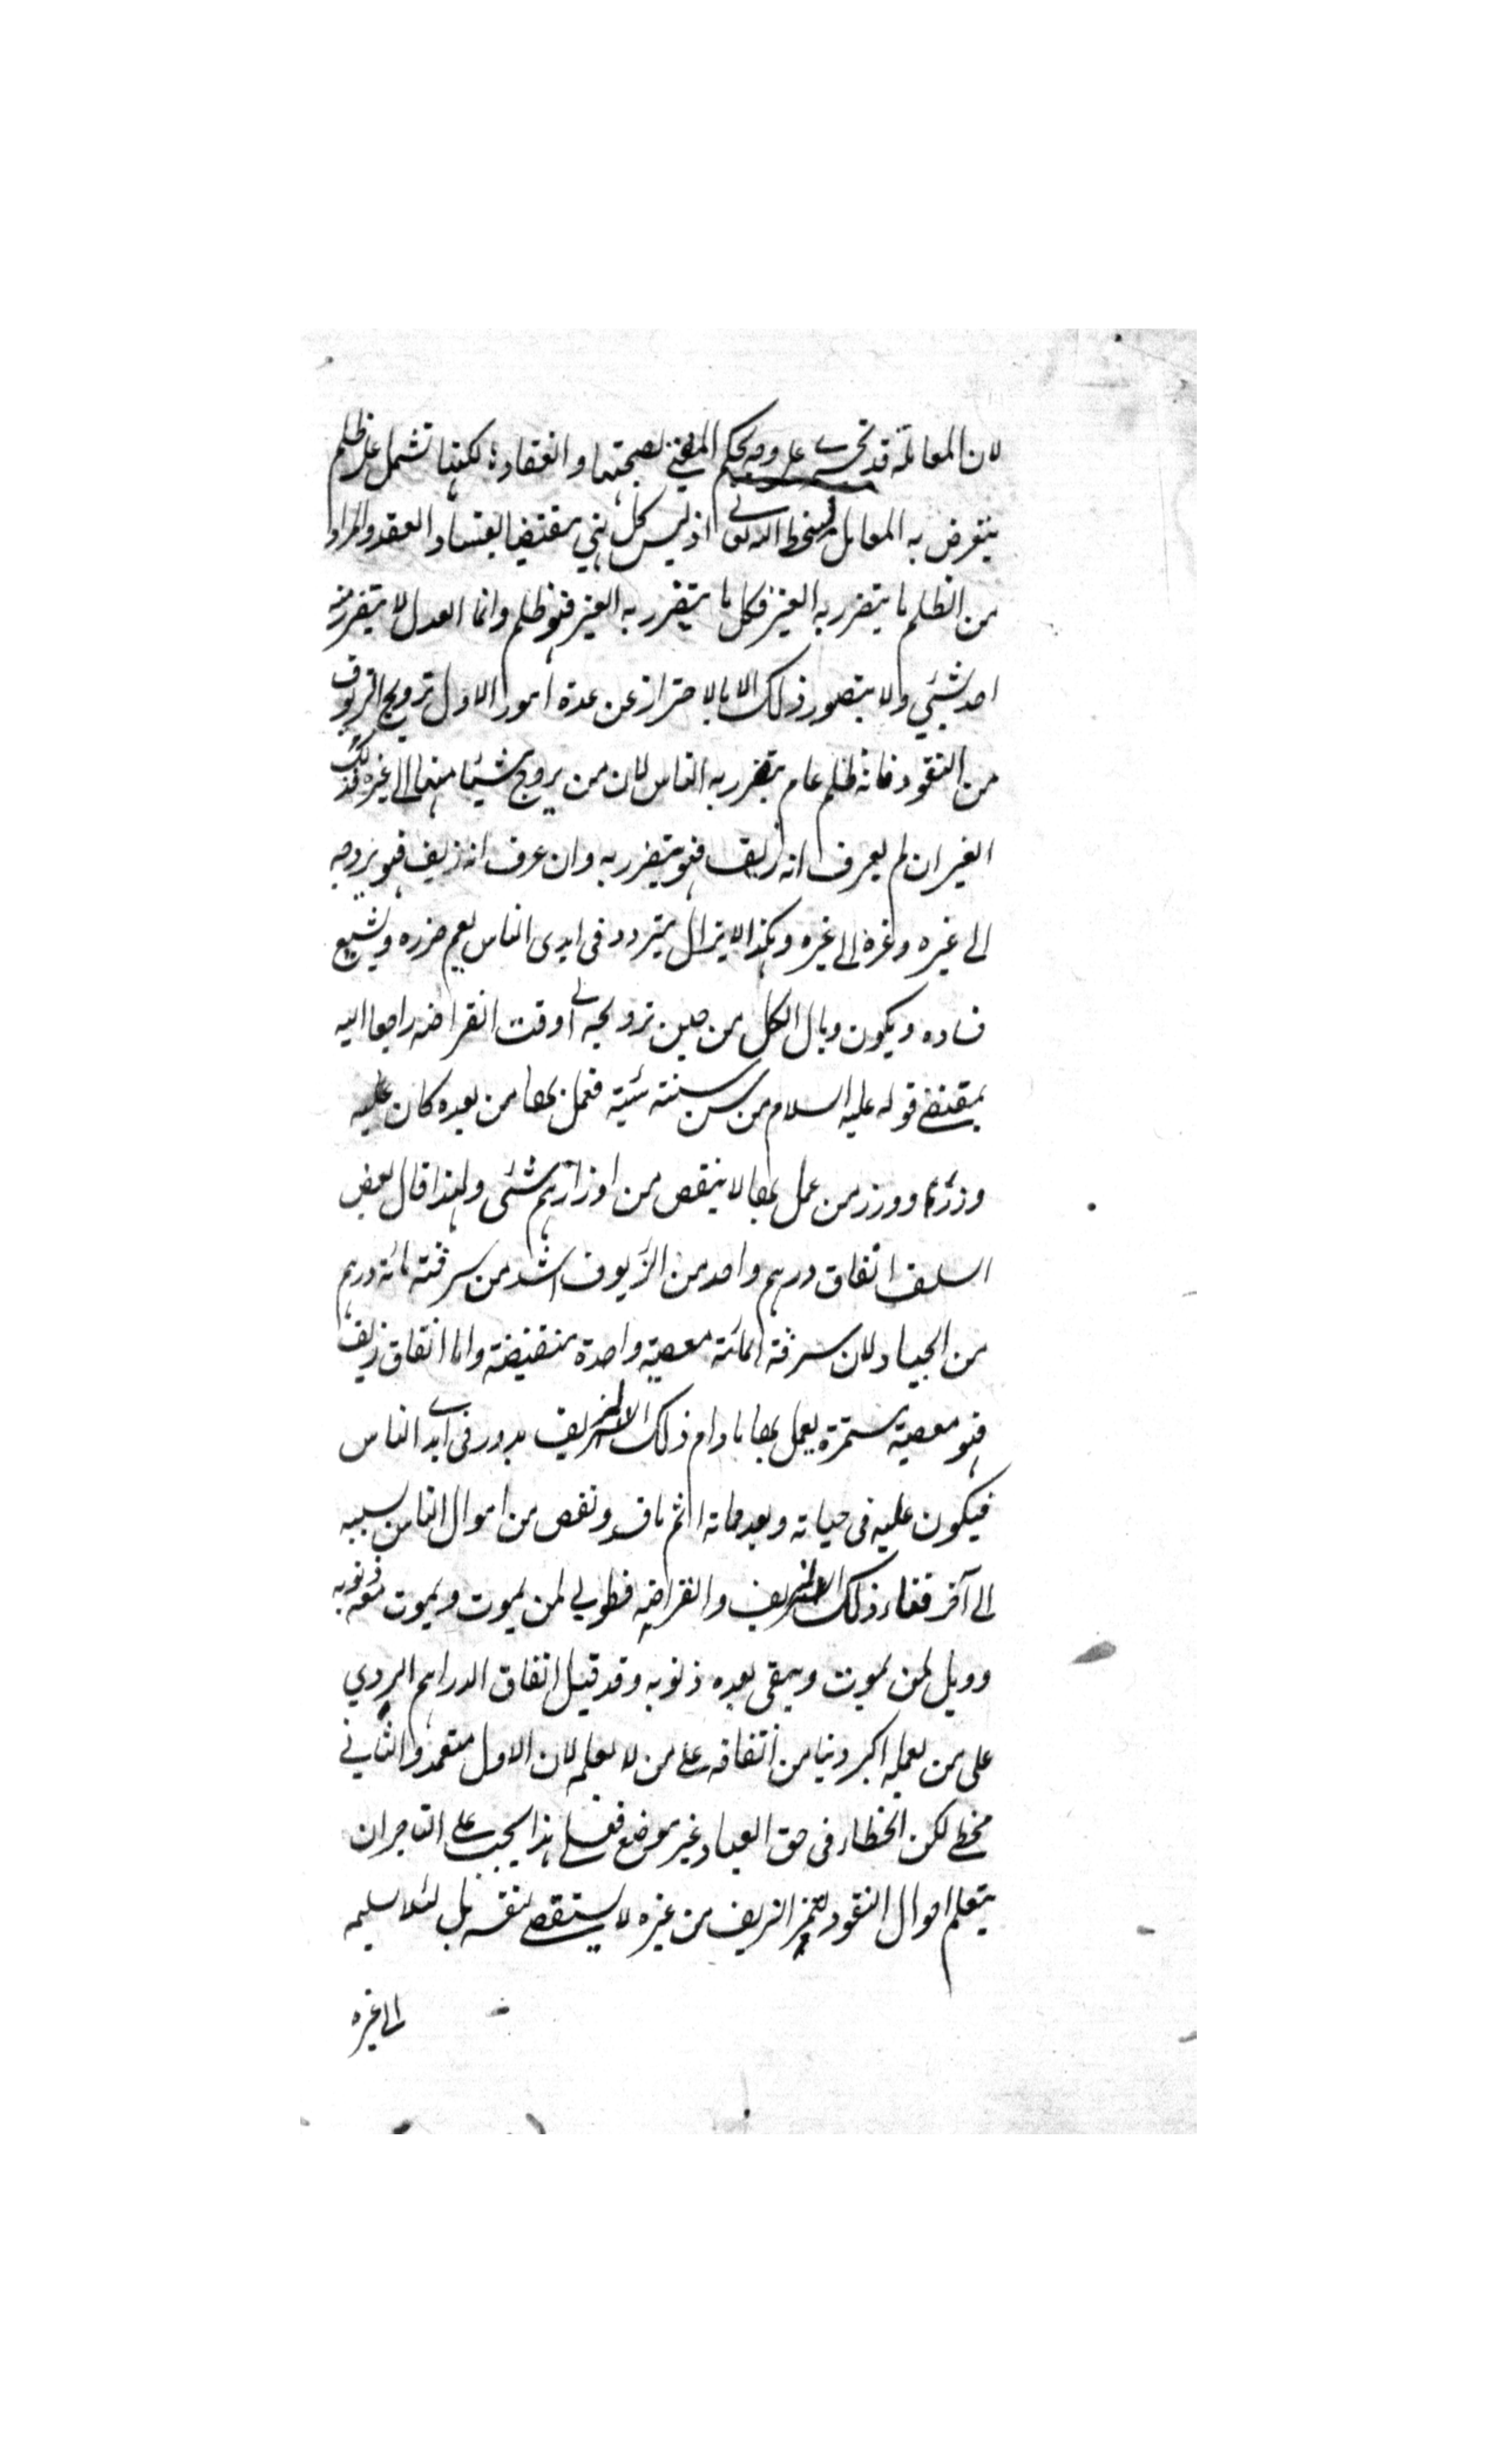 لان المعاملة قد تجرى على وجه يحكم المفتي بصحتها وانعقادها لكنها تشمل على ظلم
يتعرض به المعامل لسخط الله تعالى اذ ليس كل نهي مقتضيا لفساد العقد والمراد
من الظلم ما يتضرر به الغير فكل ما يتضرر به الغير فهو ظلم وانما العدل لا يتضرر منه
احد بشئي ولا يتصور ذلك الا بالاحتراز عن عدة امور الاول ترويج الزيوف
من النقود فانه ظلم عام يتضرر به الناس لان من يروج شيئا منها الى غيره فذلك
الغير ان لم يعرف انه زيف فهو يتضرر به وان عرف انه زيف فهو يروجه
الى غيره وغيره الى غيره وهكذا لا يزال يتردد فى ايدى الناس يعم ضرره ويشيع
فساده ويكون وبال الكل من حين ترويجه الى وقت انقراضه راجعا اليه
بمقتضى قوله عليه السلام من سن سنته سيئة فعمل بها من بعده كان عليه
وزرها ووزر من عمل بها لا ينقص من اوزارهم شئى ولهذا قال بعض
السلف انفاق درهم واحد من الزيوف اشد من سرقته مائة درهم
من الجياد لان سرقة المائة معصية واحدة منقضية واما انفاق زيف
فهو معصية مستمرة يعمل بها ما دام ذلك الزيف يدور فى ايدى الناس
فيكون عليه فى حياته وبعد مماته اثم ما فسد ونقص من اموال الناس بسببه
الى آخر فناء ذلك الزيف وانقراضه فطوبى لمن يموت ويموت معه ذنوبه
وويل لمن يموت ويبقى بعده ذنوبه وقد قيل انفاق الدراهم الردي
على من يعلمه اكبر ذنبا من انفاقه على من لا يعلمه لان الاول متعمد والثاني
مخطى لكن الخطاء فى حق العباد غير موضع فعلى هذا يجب على التاجر ان
يتعلم احوال النقود ليتميز الزيف من غيره لا يستقصى لنفسه بل لئلا يسلمه
الى غيره